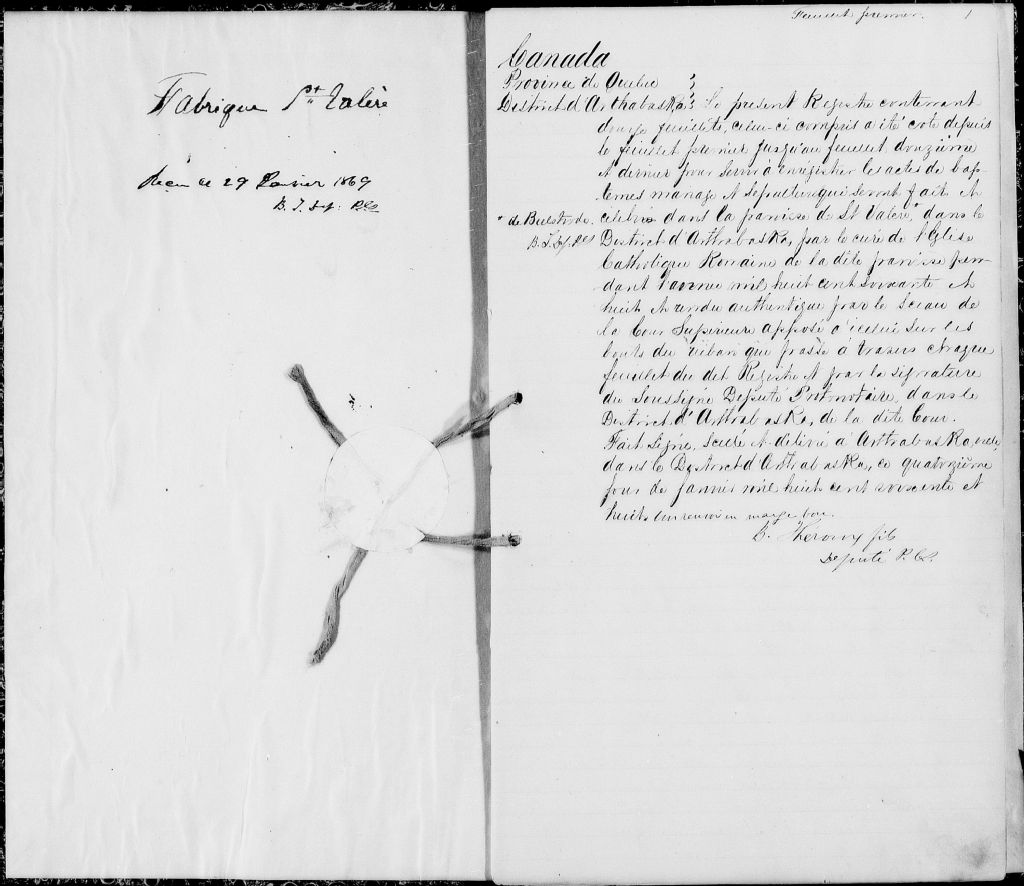 Fabrique St Valère
Recu ce 29 Janvier 1869
B. T. Dep. P.C.S
Feuillet premier. 1
Canada
Province de Quebec }
District d'Arthabaska } Le présent Registre contenant
douze feuillets, celui-ci compris a été coté depuis
le feuillet premier jusqu'au feuillet douzième
et dernier pour servir à enrégistrer les actes de bap-
têmes mariage et sépultures qui seront fait et
célébrés dans la paroisse de St Valère " dans le
" de Bulstrode.
B. T. Dep. P.C.S
District d'Arthabaska, par le curé de l'Eglise
Catholique Romaine de la dite paroisse pen-
dant l'année mil huit cent soixante et
huit et rendu authentique par le sceau de
la Cour Supérieure apposé à icelui sur les
bouts du ruban qui passe à travers chaque
feuillet du dit Registre et par la signature
du Soussigné Député Protonotaire, dans le
District d'Arthabaska, de la dite Cour.
Fait Signé, Scellé et délivré à Arthabaskaville,
dans le District d'Arthabaska, ce quatorzième
jour de janvier mil huit cent soixante et
huit. Un renvoi en marge bon.
B. Theroux fils
Député P.C.S.